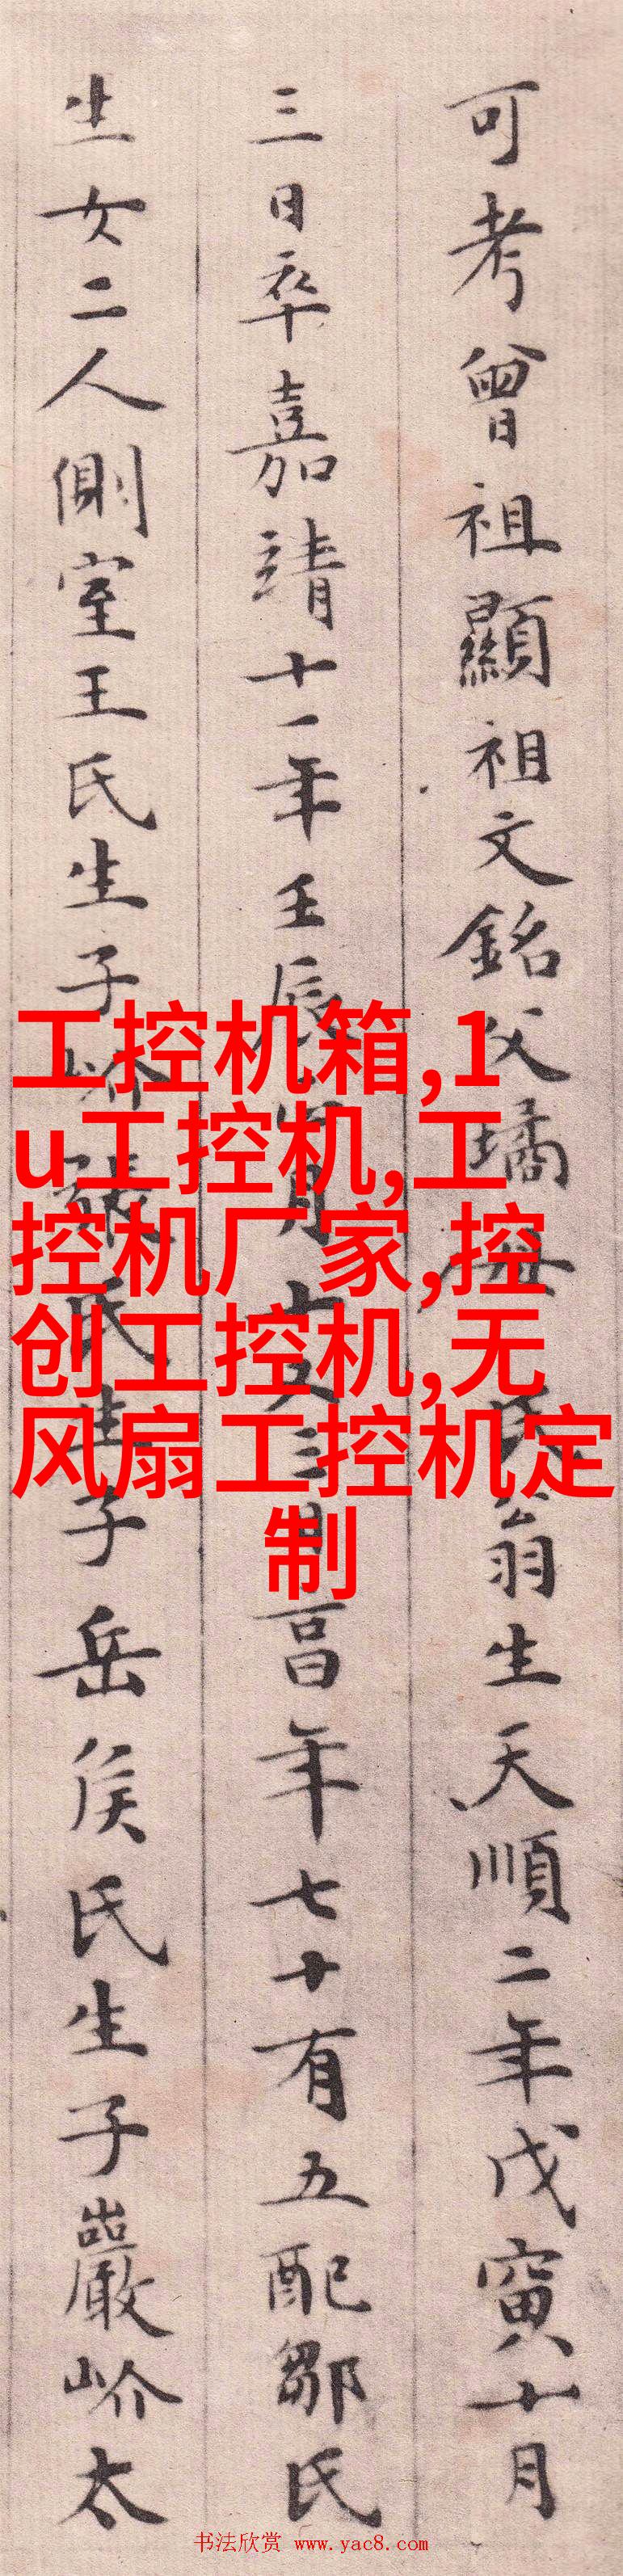 可考曾祖顯祖文銘父璚母氏翁生天順二年戊寅十月
三日卒嘉靖十一年壬辰月又三日亯年七十有五配鄒氏
生女二人側室王氏生子岕張氏生子岳侯氏生子巖岕太
工控机箱,1
u工控机,工
控机厂家,控
创工控机,无
风扇工控机定
制
书法欣赏 www.yac8.com